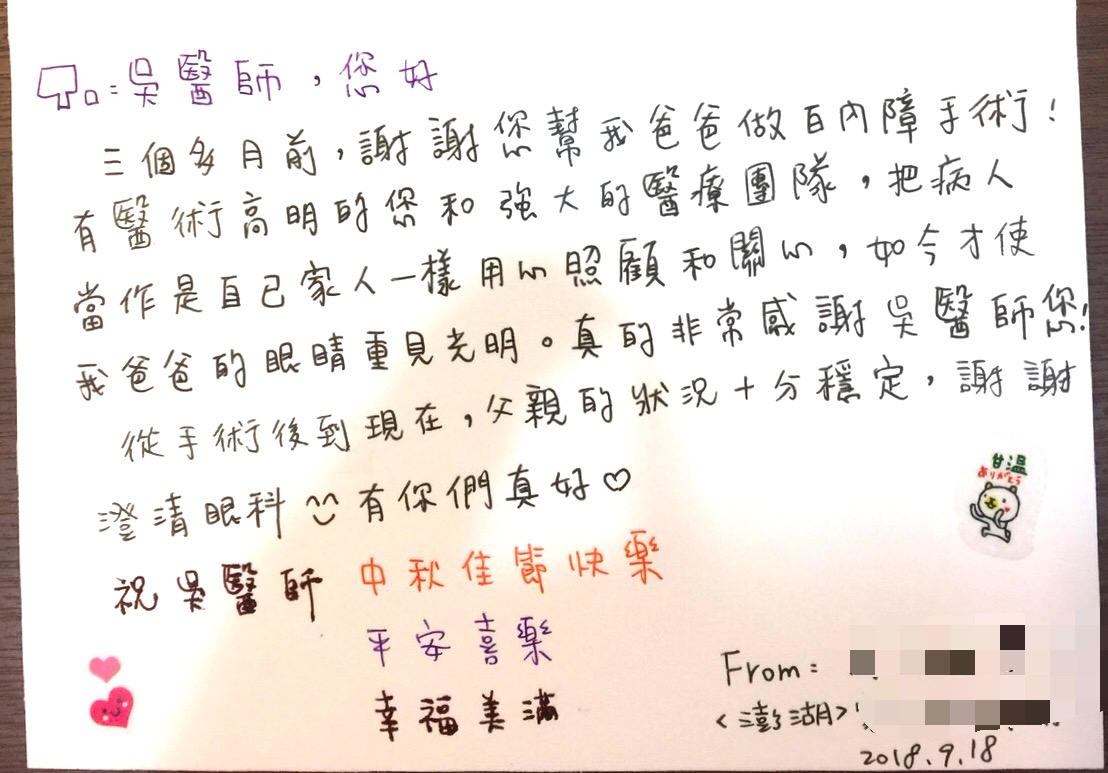 To:吳醫師，您好
三個多月前，謝謝您幫我爸爸做白內障手術！
有醫術高明的您和強大的醫療團隊，把病人
當作是自己家人一樣用心照顧和關心，如今才使
我爸爸的眼睛重見光明。真的非常感謝吳醫師您！
從手術後到現在，父親的狀況十分穩定，謝謝
澄清眼科 有你們真好♡
甘溫
ありがとう
祝吳醫師 中秋佳節快樂
平安喜樂
幸福美滿
From:
<澎湖>
2018.9.18